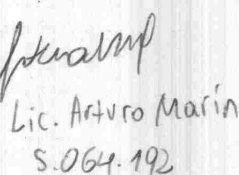 Lic. Arturo Marín
5.064.192